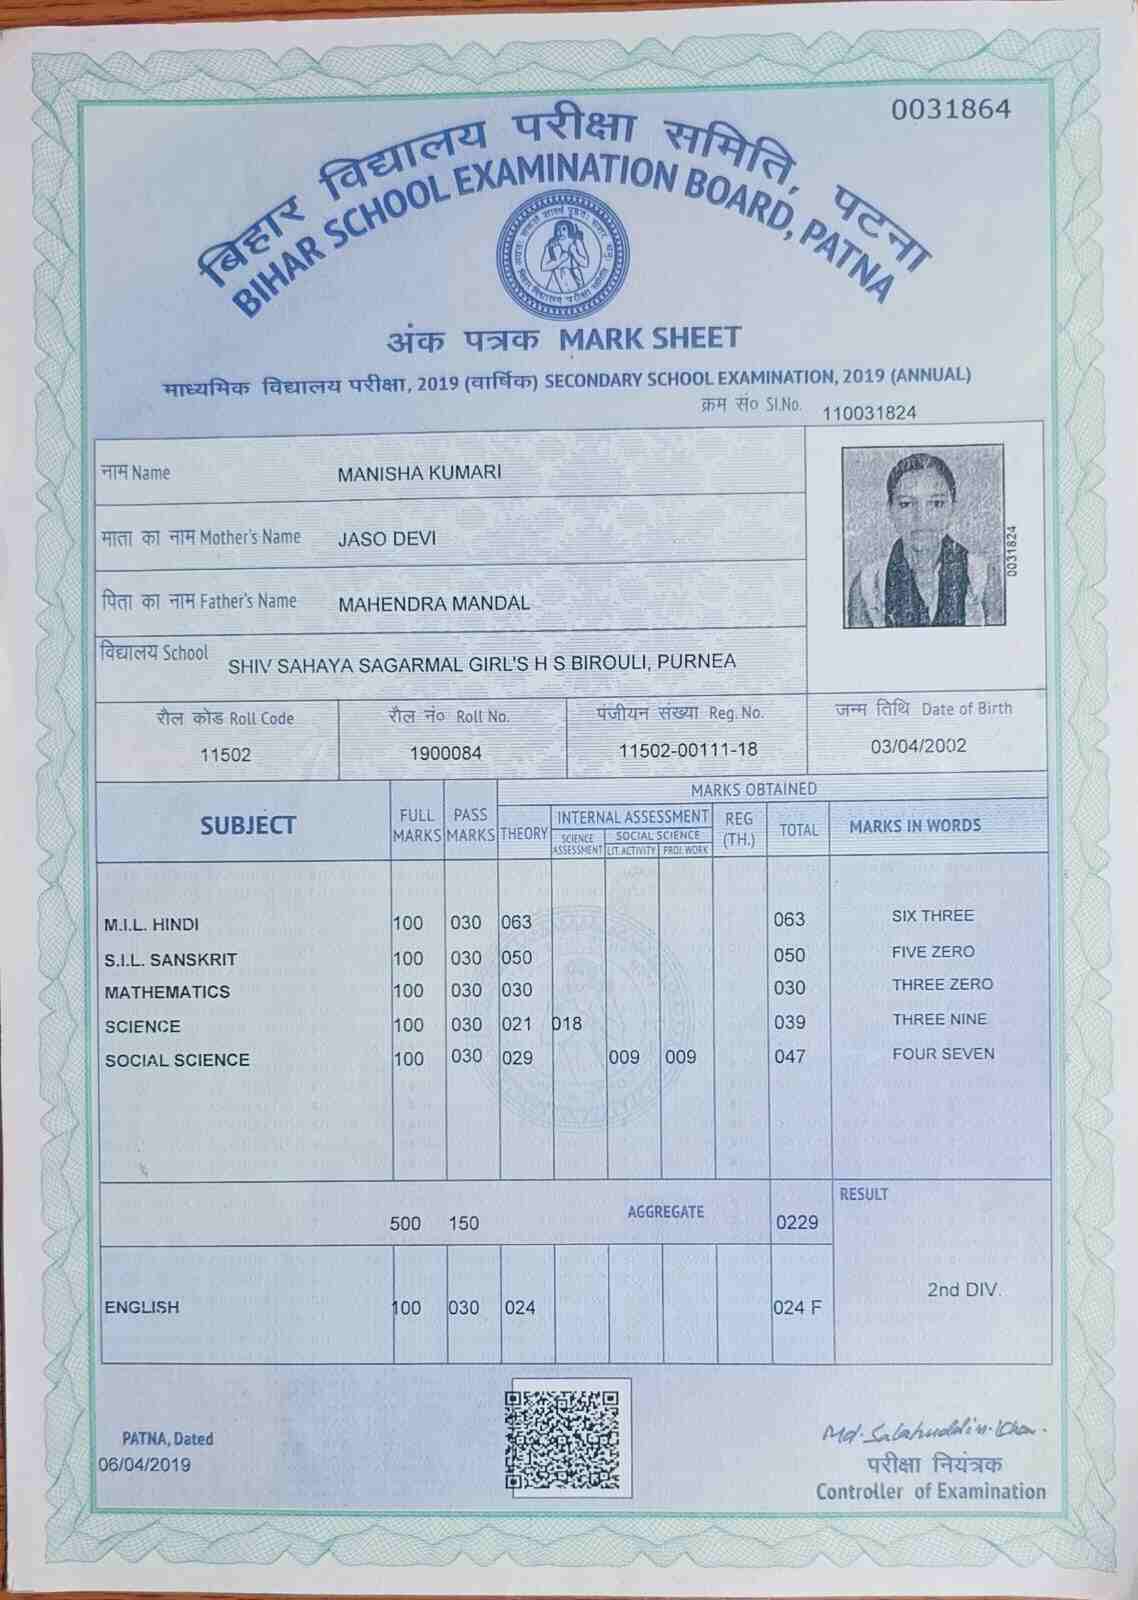 0031864
बिहार विद्यालय परीक्षा समिति, पटना
BIHAR SCHOOL EXAMINATION BOARD, PATNA
अंक पत्रक MARK SHEET
माध्यमिक विद्यालय परीक्षा, 2019 (वार्षिक) SECONDARY SCHOOL EXAMINATION, 2019 (ANNUAL)
क्रम सं० Sl.No. 110031824
नाम Name MANISHA KUMARI
माता का नाम Mother's Name JASO DEVI
0031824
पिता का नाम Father's Name MAHENDRA MANDAL
विद्यालय School SHIV SAHAYA SAGARMAL GIRL'S H S BIROULI, PURNEA
रौल कोड Roll Code रौल नं० Roll No. पंजीयन संख्या Reg. No. जन्म तिथि Date of Birth
11502 1900084 11502-00111-18 03/04/2002
SUBJECT FULL MARKS PASS MARKS MARKS OBTAINED
THEORY INTERNAL ASSESSMENT REG (TH.) TOTAL MARKS IN WORDS
SCIENCE ASSESSMENT SOCIAL SCIENCE
LIT. ACTIVITY PROJ. WORK
M.I.L. HINDI 100 030 063 063 SIX THREE
S.I.L. SANSKRIT 100 030 050 050 FIVE ZERO
MATHEMATICS 100 030 030 030 THREE ZERO
SCIENCE 100 030 021 018 039 THREE NINE
SOCIAL SCIENCE 100 030 029 009 009 047 FOUR SEVEN
500 150 AGGREGATE 0229 RESULT
2nd DIV.
ENGLISH 100 030 024 024 F
PATNA, Dated
06/04/2019
Md. Salahuddin Khan
परीक्षा नियंत्रक
Controller of Examination